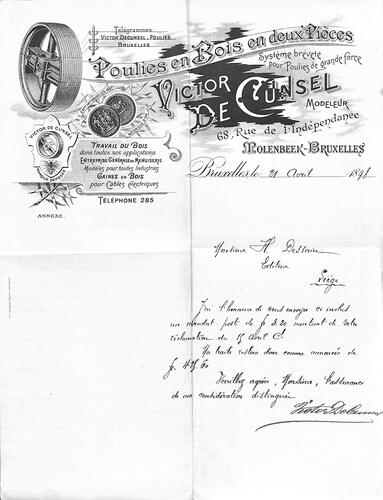 Télégrammes:
VICTOR DECUNSEL, POULIES
BRUXELLES
Poulies en Bois en deux Pièces
Système breveté
pour Poulies de grande force
VICTOR
DE CUNSEL
MODELEUR
68, Rue de l'Indépendance
MOLENBEEK-BRUXELLES
VICTOR DE CUNSEL
TRAVAIL DU BOIS
dans toutes ses applications
ENTREPRISE GÉNÉRALE DE MENUISERIE
Modèles pour toutes industries
GAINES EN BOIS
pour Câbles électriques
TÉLÉPHONE 285
Bruxelles le 21 Avril 1898
ANNEXE:
Monsieur H. Dessain
Editeur
Liège
J'ai l'honneur de vous envoyer ci inclus
un mandat poste de f 3.20 montant de votre
réclamation du 15 Avril Ct
Ma traite restera donc comme annoncée de
f. 48,60
Veuillez agréer, Monsieur, l'assurance
de ma considération distinguée
Victor De Cunsel